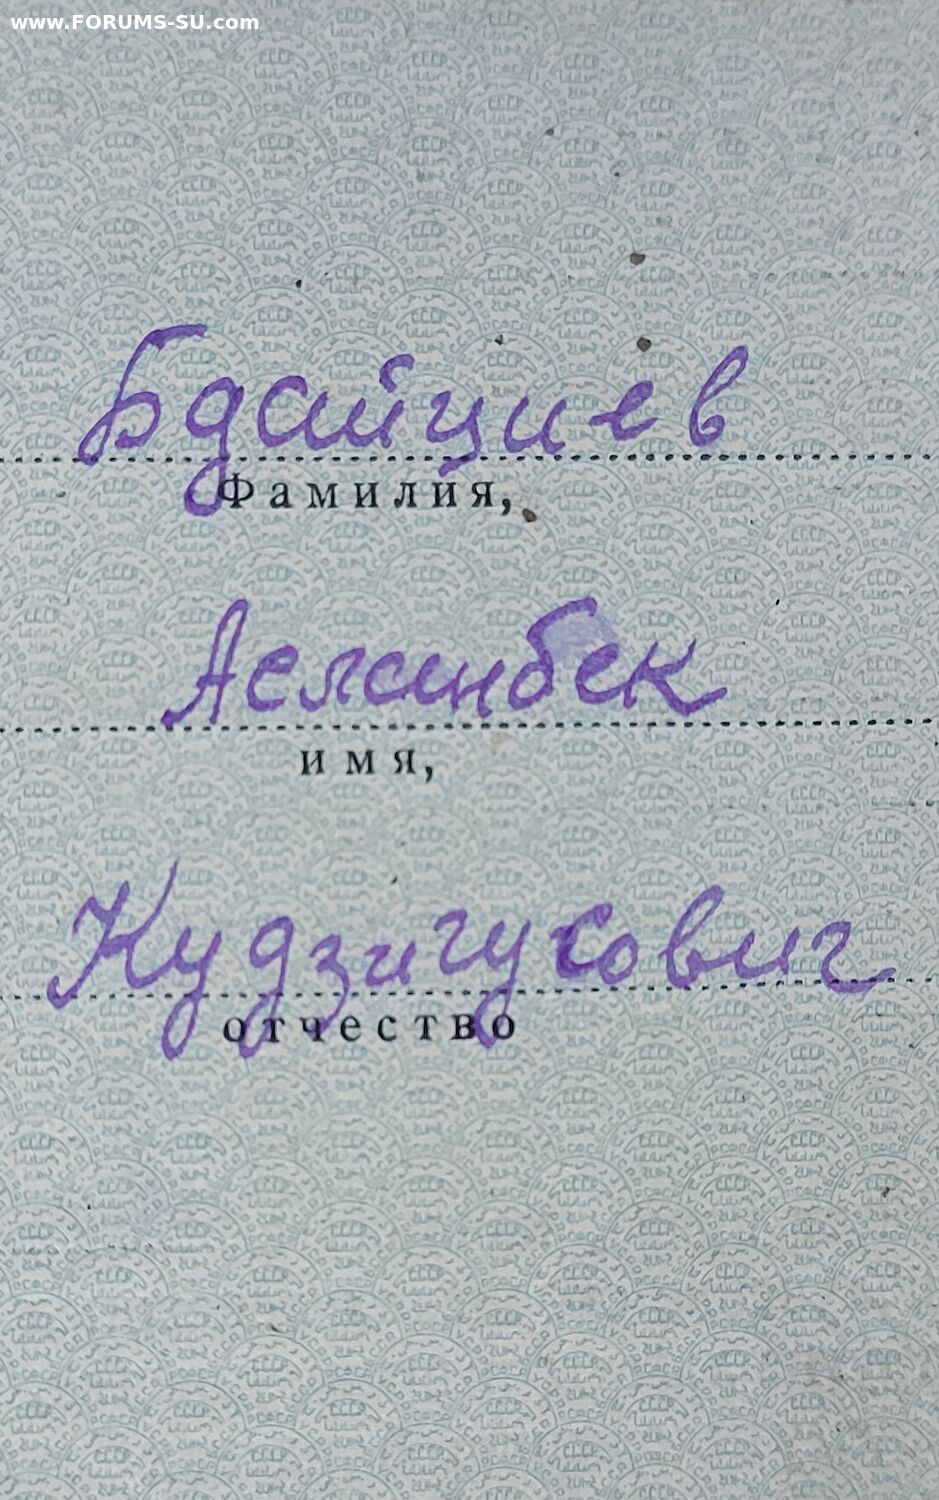 www.FORUMS-SU.com
Бдайциев
Фамилия,
Аслanбек
имя,
Кудзигусович
отчество